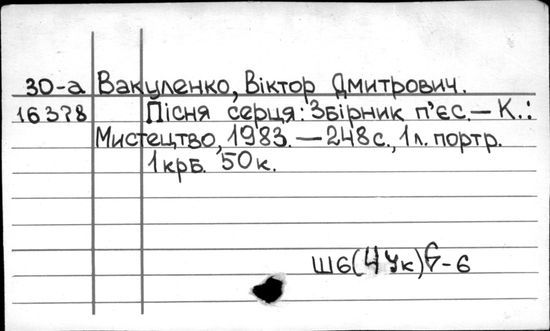 30-а Вакуленко, Віктор Дмитрович.
16378 Пісня серця: Збірник п'єс. – К.:
Мистецтво, 1983. – 248с., 1л. портр.
1крб. 50к.
Ш6(4Ук)6-6